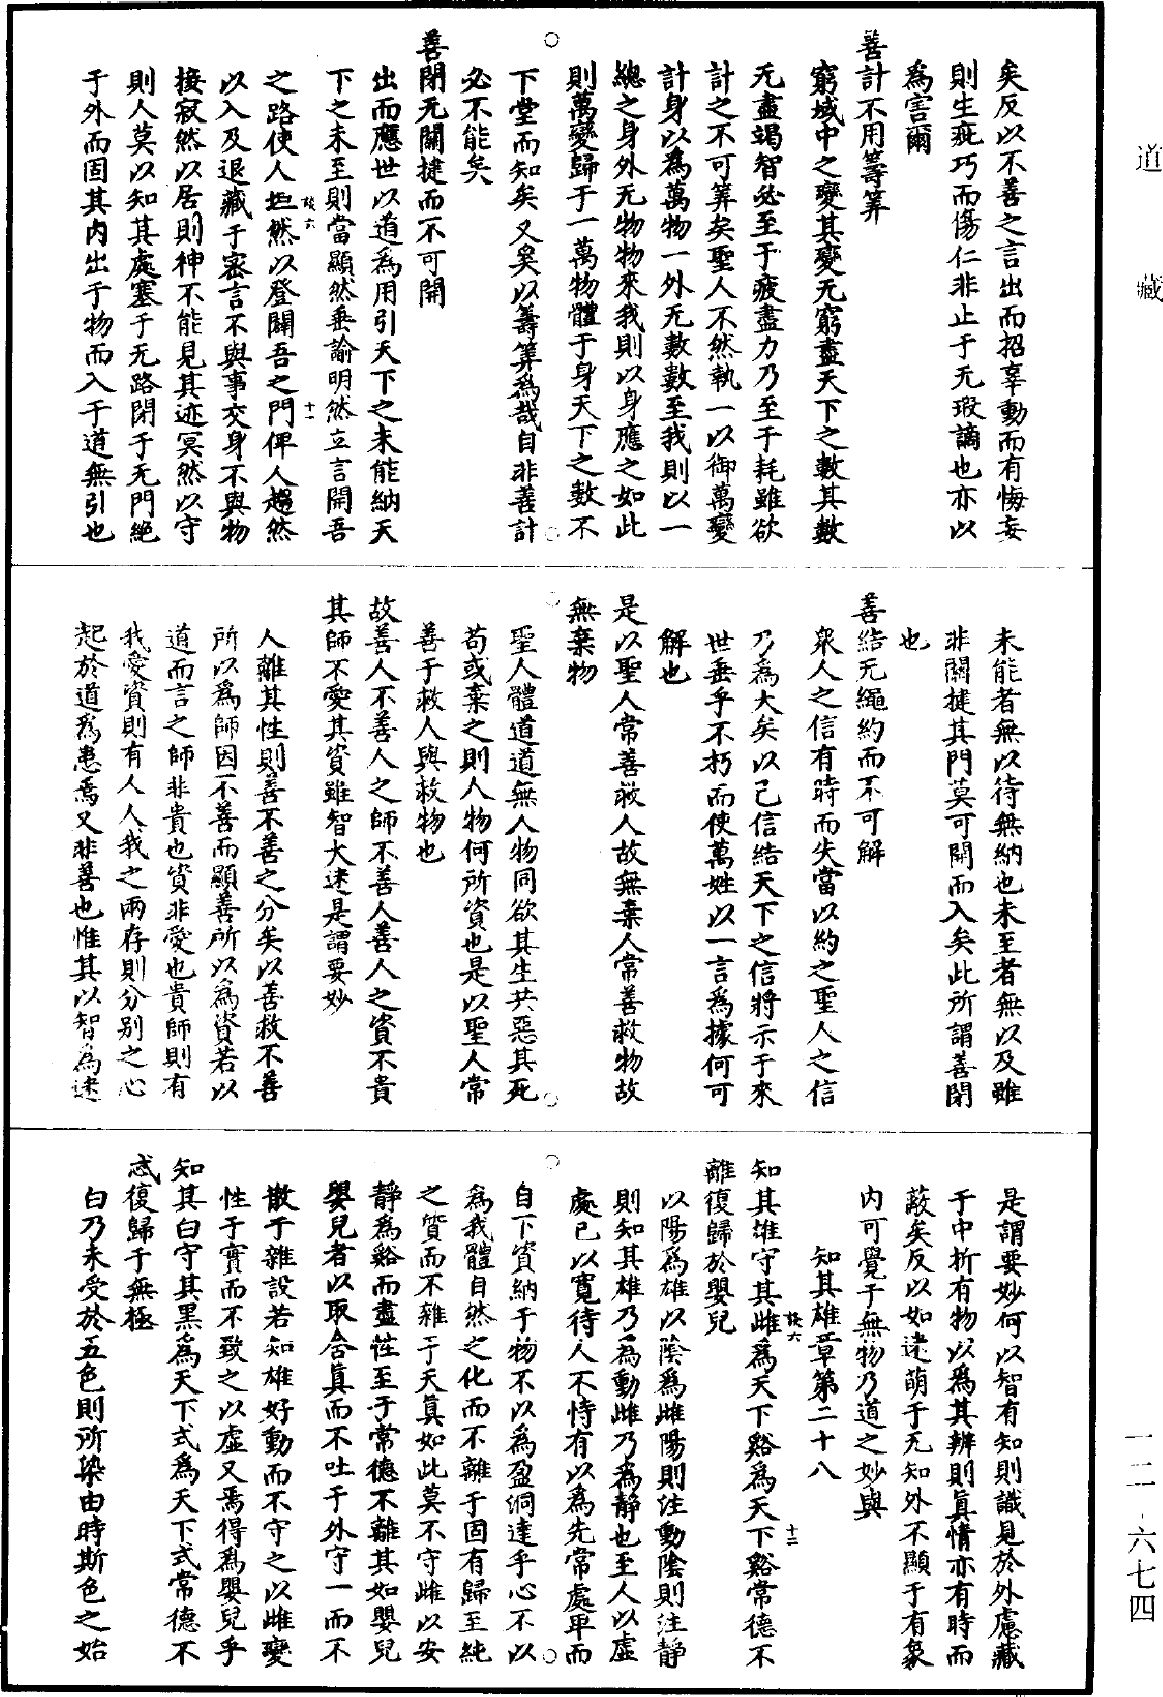 道藏
矣反以不善之言出而招辜動而有悔妄
則生疵巧而傷仁非止于无瑕謫也亦以
爲言爾
善計不用籌筭
窮域中之變其變无窮盡天下之數其數
无盡竭智必至于疲盡力乃至于耗雖欲
計之不可筭矣聖人不然執一以御萬變
計身以爲萬物一外无數數至我則以一
總之身外无物物來我則以身應之如此
則萬變歸于一萬物體于身天下之數不
下堂而知矣又奚以籌筭爲哉自非善計
必不能矣
善閉无關揵而不可開
出而應世以道爲用引天下之未能納天
下之未至則當顯然垂諭明然立言開吾
之路使人坦然以登闢吾之門俾人趨然
以入及退藏于密言不與事交身不與物
接寂然以居則神不能見其迹冥然以守
則人莫以知其處塞于无路閉于无門絕
于外而固其内出于物而入于道無引也
未能者無以待無納也未至者無以及雖
非關揵其門莫可開而入矣此所謂善閉
也
善結无繩約而不可解
衆人之信有時而失當以約之聖人之信
乃爲大矣以己信結天下之信將示于來
世垂乎不朽而使萬姓以一言爲據何可
解也
是以聖人常善救人故無棄人常善救物故
無棄物
聖人體道道無人物同欲其生共惡其死
苟或棄之則人物何所資也是以聖人常
善于救人與救物也
故善人不善人之師不善人善人之資不貴
其師不愛其資雖智大迷是謂要妙
人離其性則善不善之分矣以善救不善
所以爲師因不善而顯善所以爲資若以
道而言之師非貴也資非愛也貴師則有
我愛資則有人人我之兩存則分别之心
起於道爲患焉又非善也惟其以智爲迷
是謂要妙何以智有知則識見於外慮藏
于中析有物以爲其辨則眞情亦有時而
蔽矣反以如迷萌于无知外不顯于有象
内可覺于無物乃道之妙與
知其雄章第二十八
知其雄守其雌爲天下谿爲天下谿常德不
離復歸於嬰兒
以陽爲雄以陰爲雌陽則注動陰則注静
則知其雄乃爲動雌乃爲静也至人以虚
處己以寛待人不恃有以爲先常處卑而
自下資納于物不以爲盈洞達乎心不以
爲我體自然之化而不離于固有歸至純
之質而不雜于天眞如此莫不守雌以安
静爲谿而盡性至于常德不離其如嬰兒
嬰兒者以取含眞而不吐于外守一而不
散于雜設若知雄好動而不守之以雌變
性于實而不致之以虛又焉得爲嬰兒乎
知其白守其黑爲天下式爲天下式常德不
忒復歸于無極
白乃未受於五色則所染由時斯色之始
談六
十一
談六
十二
一二-六七四